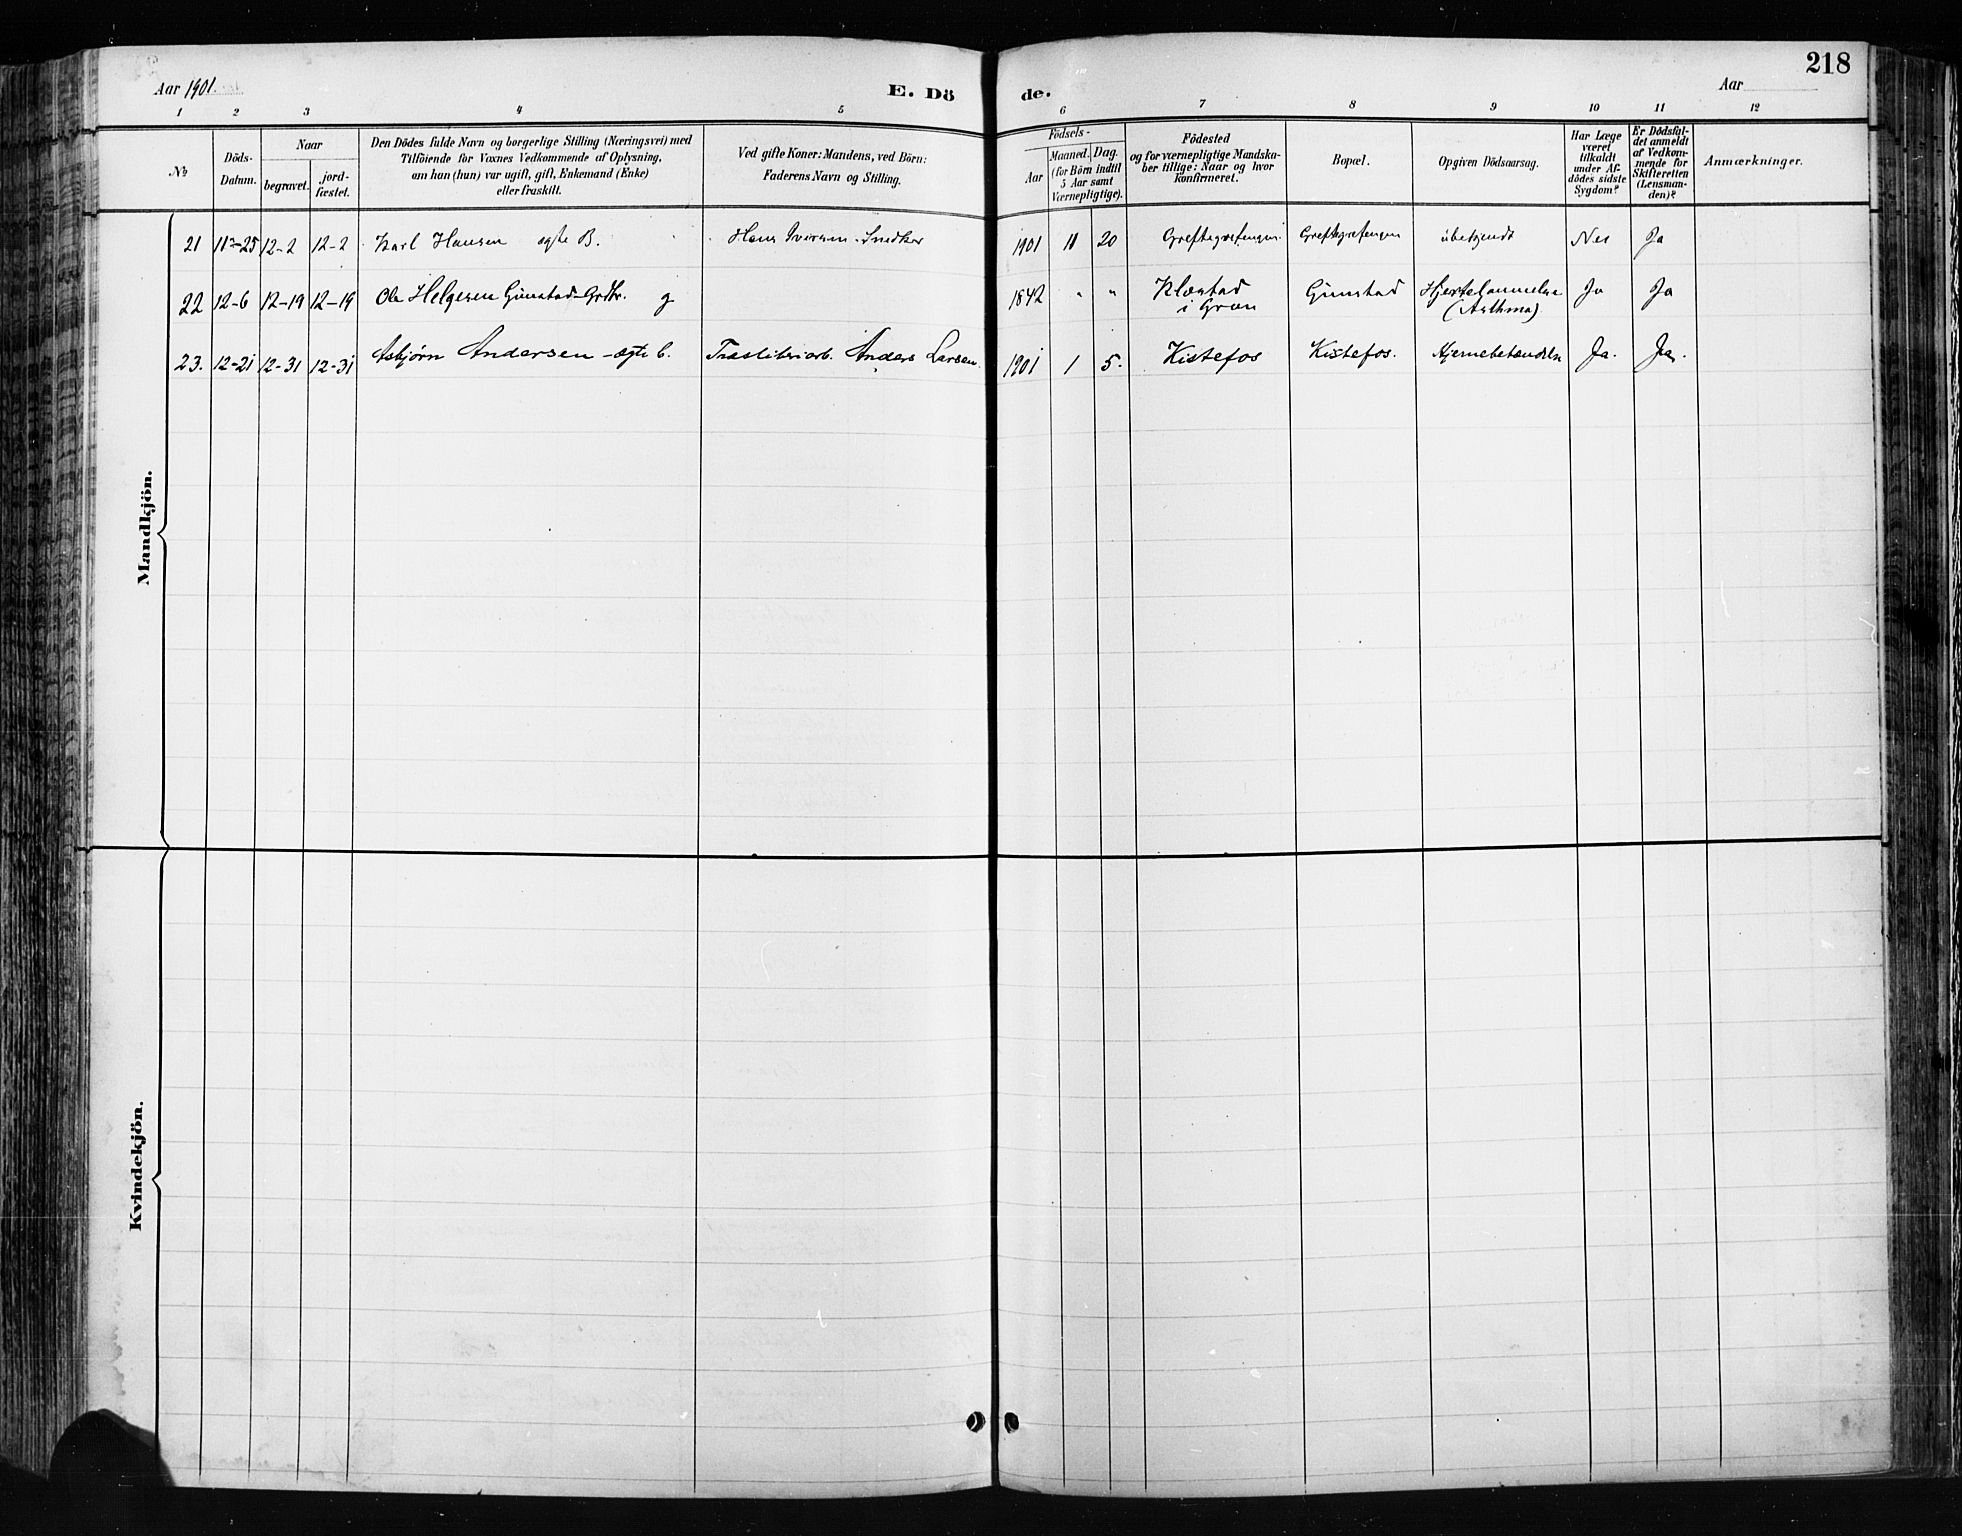 218
Aar 1901. E. Dö de. Aar
1 2 3 4 5 6 7 8 9 10 11 12
No
Döds-
Datum.
Naar
begravet.
jord-
fæstet.
Den Dödes fulde Navn og borgerlige Stilling (Næringsvei) med
Tilföiende for Voxnes Vedkommende af Oplysning,
om han (hun) var ugift, gift, Enkemand (Enke)
eller fraskilt.
Ved gifte Koner: Mandens, ved Börn:
Faderens Navn og Stilling.
Födsels-
Aar
Maaned.
Dag.
(for Börn indtil
5 Aar samt
Værnepligtige).
Födested
og for værnepligtige Mandska-
ber tillige: Naar og hvor
konfirmeret.
Bopæl.
Opgiven Dödsaarsag.
Har Læge
været
tilkaldt
under Af-
dödes sidste
Sygdom?
Er Dödsfal-
det anmeldt
af Vedkom-
mende for
Skifteretten
(Lensman-
den)?
Anmærkninger.
Mandkjön.
21 11-25 12-2 12-2 Karl Hansen ægte B. Hans Iversen Snedker 1901 11 20 Grefsegrefengen Grefsegrefengen ubekjendt Nei Ja
22 12-6 12-19 12-19 Ole Helgesen Gunstad Grdbr. g 1842 " " Klæstad i Gran Gunstad Hjertelammelse (Asthma) Ja Ja
23. 12-21 12-31 12-31 Asbjørn Andersen - ægte b. Træsliberiarb. Anders Larsen 1901 1 5. Kistefos Kistefos. Hjernebetændelse Ja. Ja.
Kvindekjön.